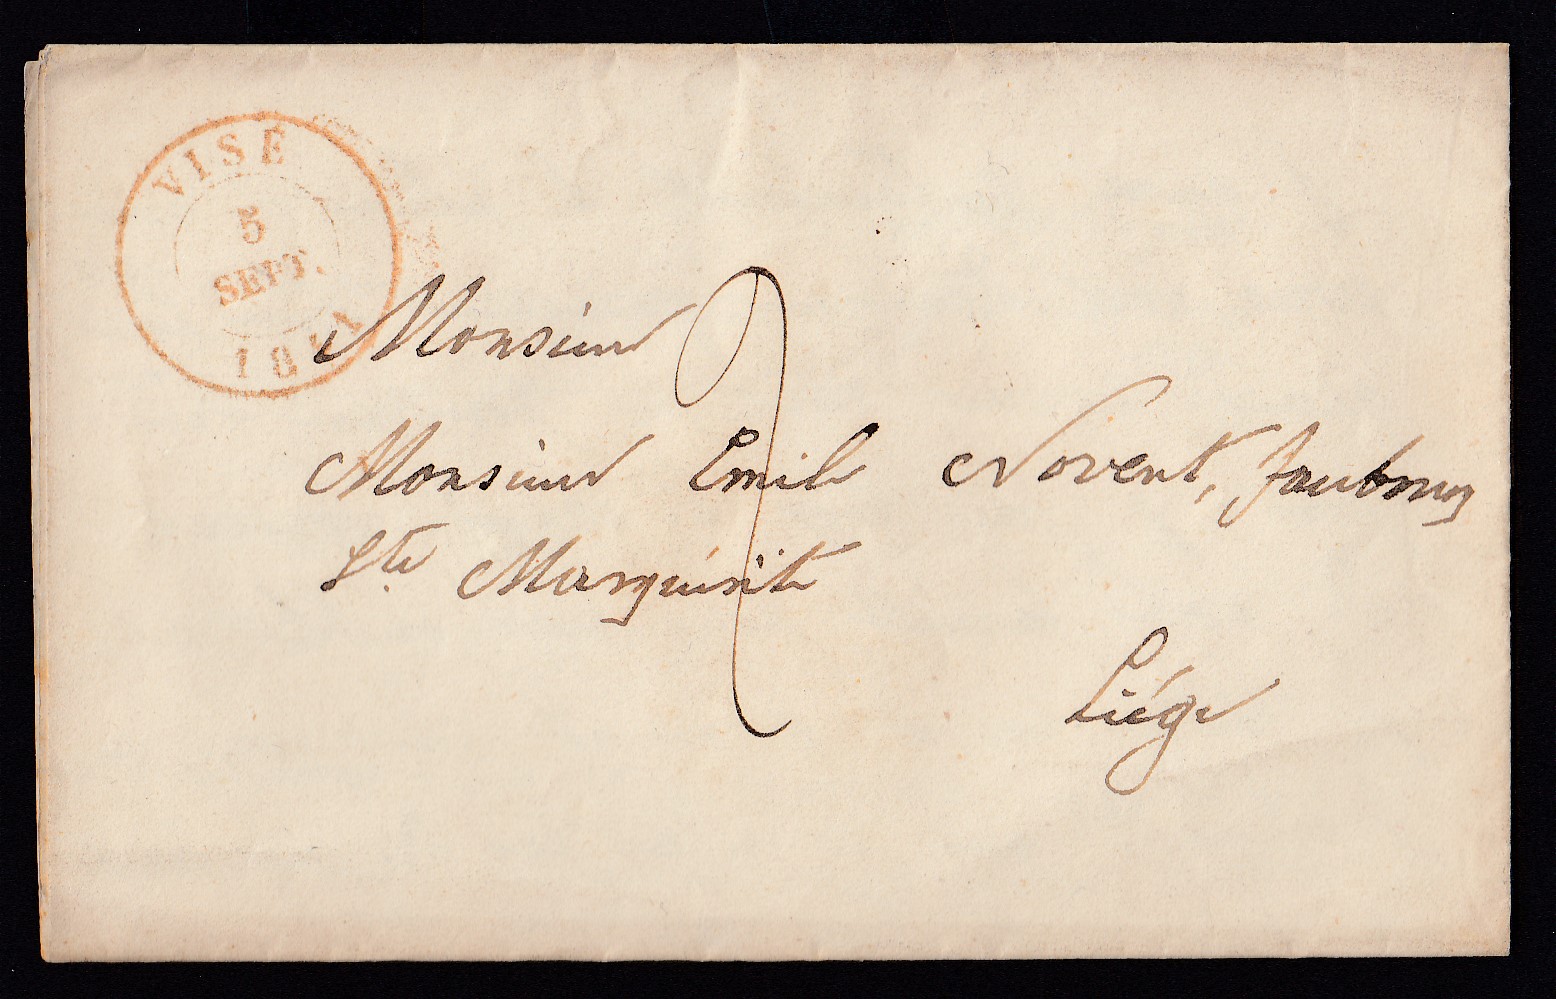 VISÉ
5
SEPT.
18
2
Monsieur
Monsieur Emile Novent, faubourg
Ste Marguerite
Liége